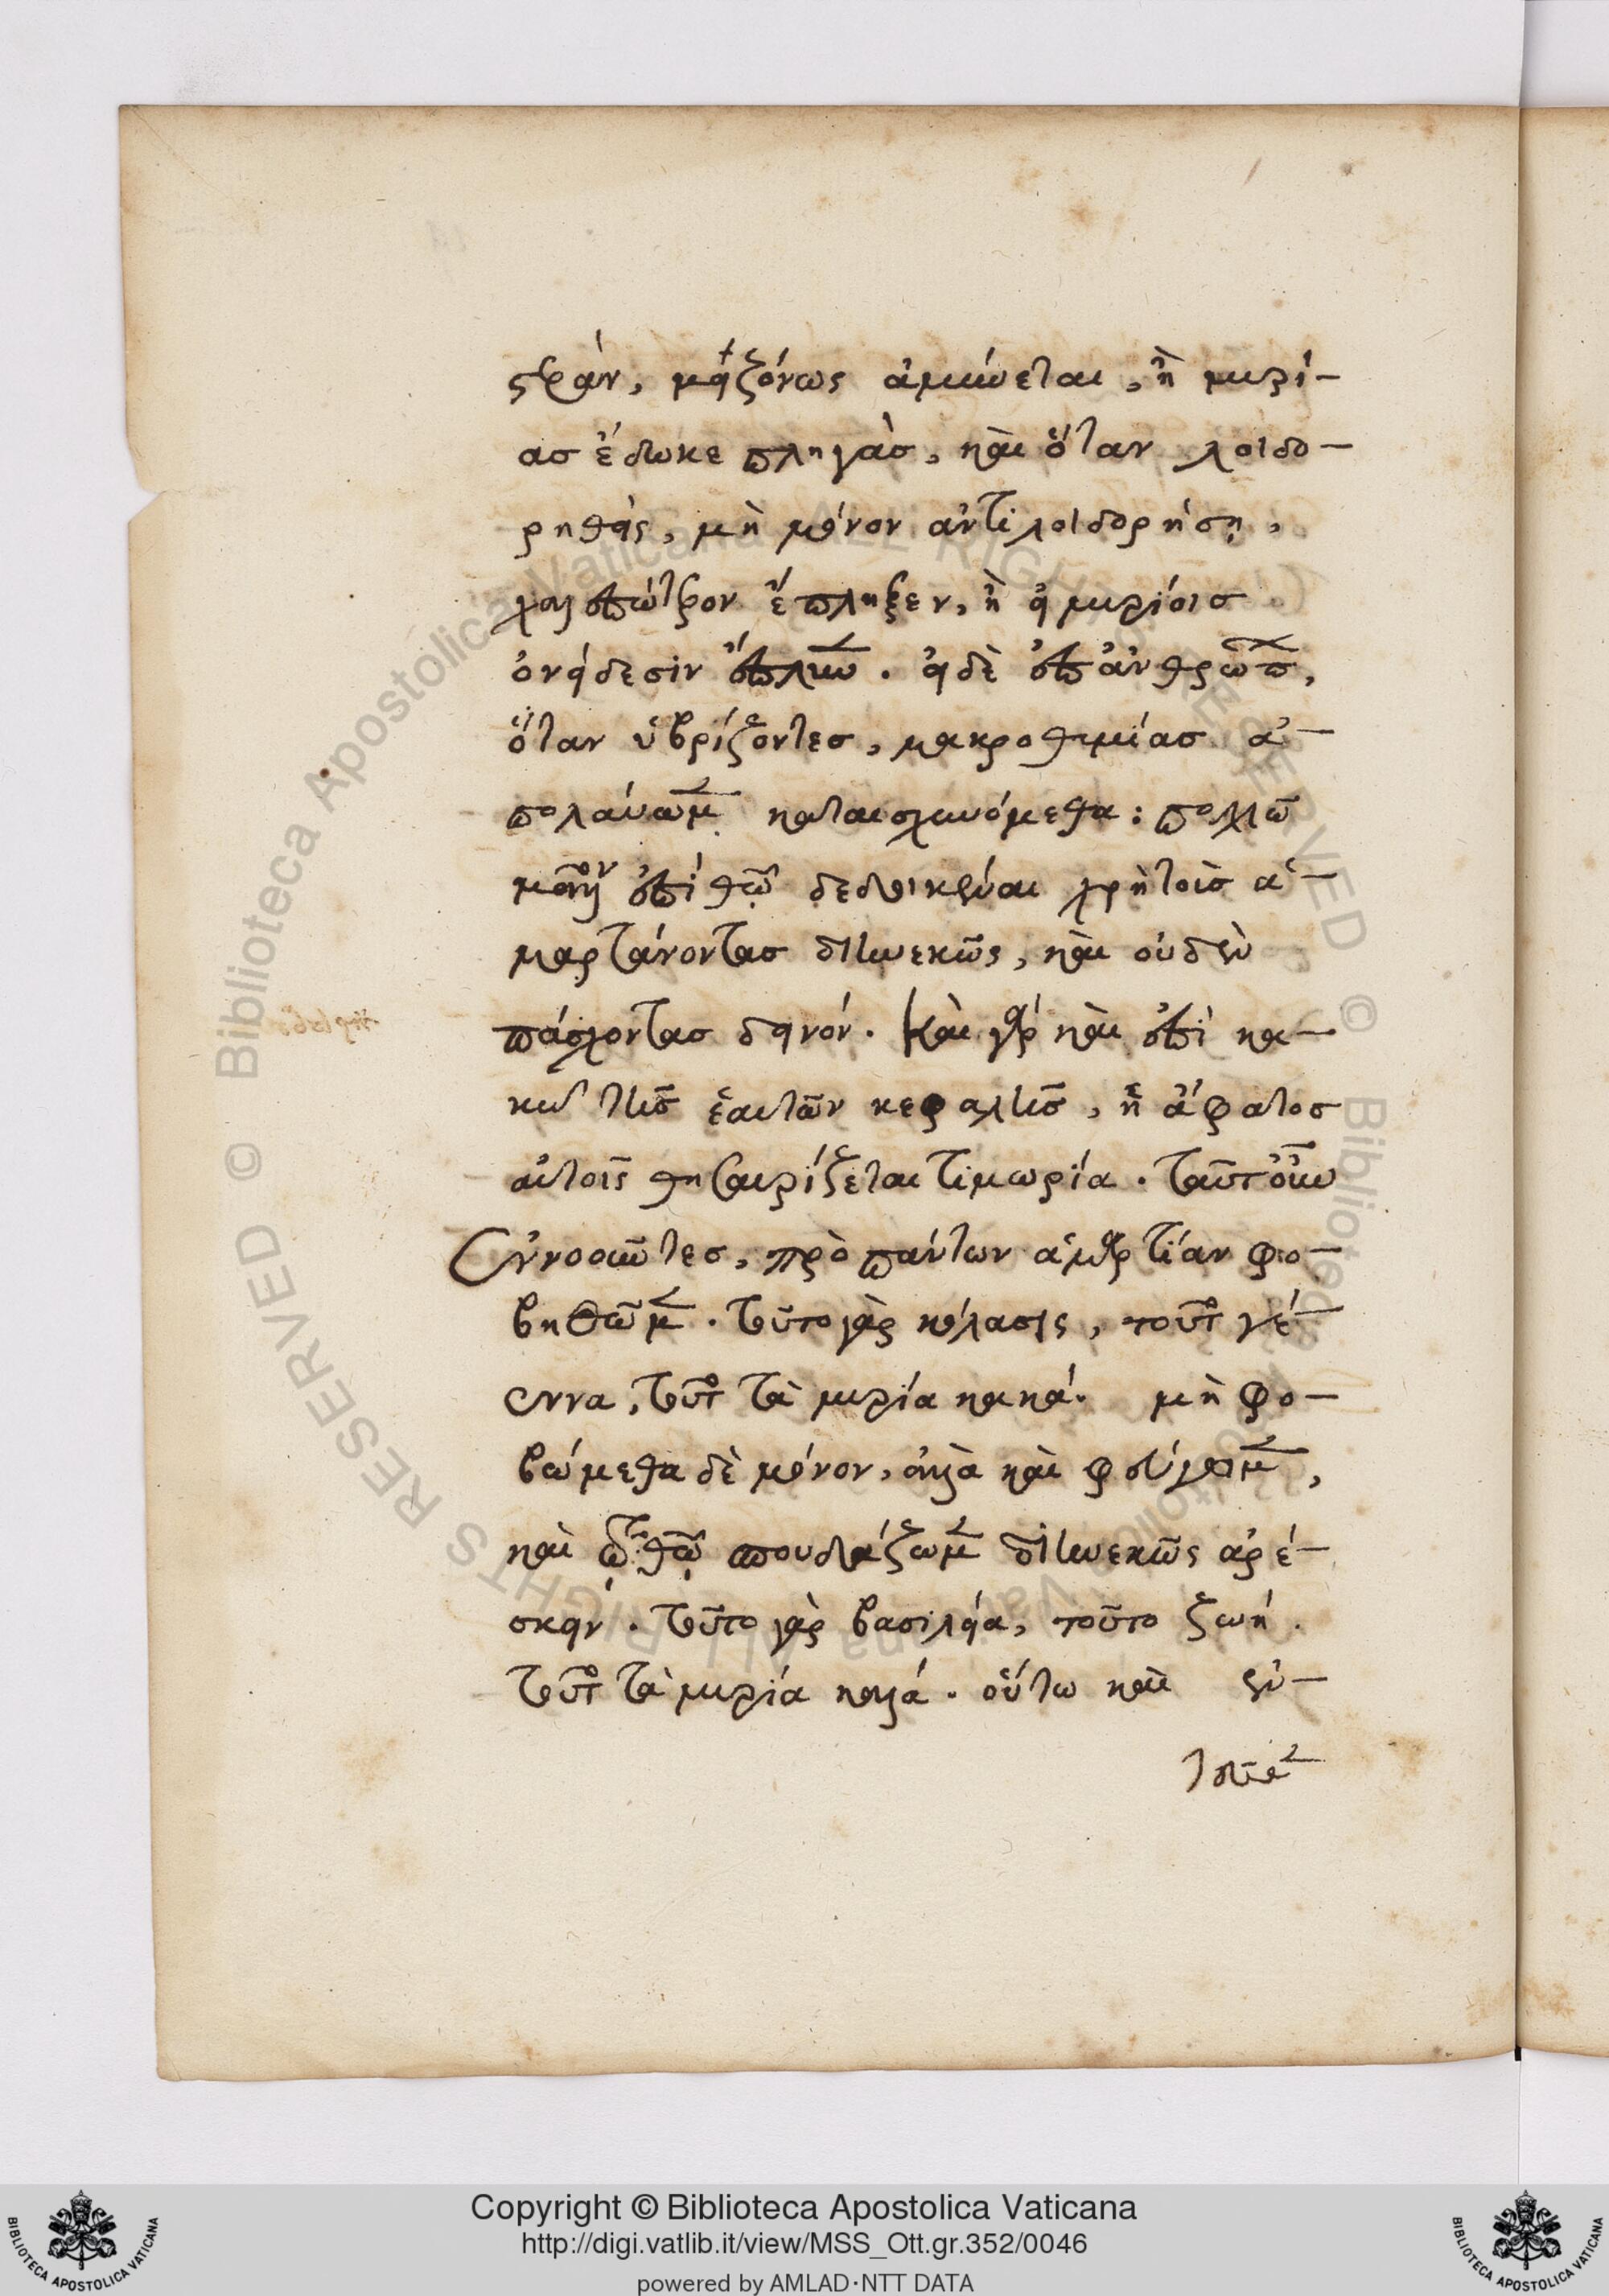 στράν, μειζόνως ἀμύνεται, ἢ μυρί-
ασ ἔδωκε πληγὰσ, καὶ ὅταν λοιδο-
ρηθεὶς, μὴ μόνον ἀντιλοιδορήσῃ,
ἔπληξεν, ἢ εἰ μυρίοισ
ὀνείδεσιν ἔπλυν. εἰ δὲ ἐπ ἀνθρώπ,
ὅταν ὑβρίζοντεσ, μακροθυμίασ ἀ-
πολάυωμ καταισχυνόμεθα: πολλῶ
μᾶλλον ἐπὶ θῶ δεδοικέναι χρὴ τοὺσ ἁ-
μαρτάνοντασ διηνεκῶς, καὶ οὐδὲν
πάσχοντασ δεινόν. Καὶ γὰρ καὶ ἐπὶ κα-
κῶ τῆσ ἑαυτῶν κεφαλῆσ, ἡ ἄφατοσ
αὐτοῖς θησαυρίζεται τιμωρία. ταῦτ οὖν
ἐννοοῦντεσ, πρὸ πάντων ἁμαρτίαν φο-
βηθῶμ. τοῦτο γὰρ κόλασις, τοῦτο γέ-
εννα, τοῦτο τὰ μυρία κακά. μὴ φο-
βώμεθα δὲ μόνον, ἀλλὰ καὶ φεύγωμ,
καὶ τῶ θῶ σπουδάζωμ διηνεκῶς ἀρέ-
σκειν. τοῦτο γὰρ βασιλεία, τοῦτο ζωή.
τοῦτο τὰ μυρία καλά. οὕτω καὶ ἐν-
τεῦθ
Copyright © Biblioteca Apostolica Vaticana
http://digi.vatlib.it/view/MSS_Ott.gr.352/0046
powered by AMLAD·NTT DATA
BIBLIOTECA APOSTOLICA VATICANA
BIBLIOTECA APOSTOLICA VATICANA